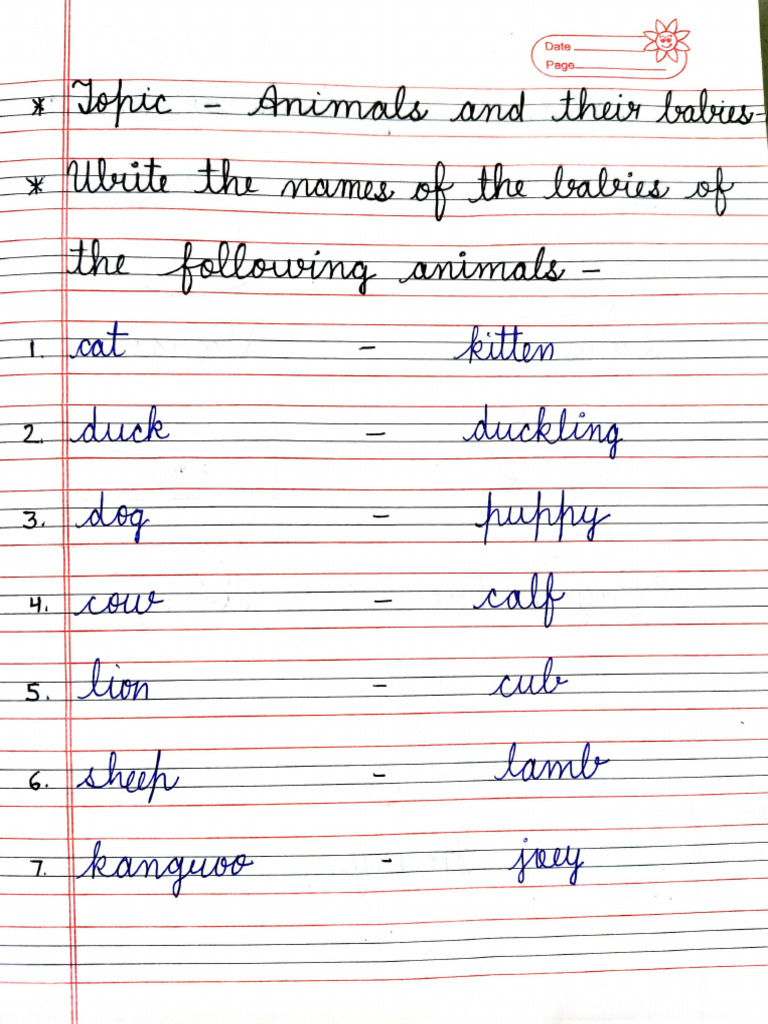 Date
Page
* Topic - Animals and their babies-
* Write the names of the babies of
the following animals -
1. cat - kitten
2. duck - duckling
3. dog - puppy
4. cow - calf
5. lion - cub
6. sheep - lamb
7. kangaroo - joey